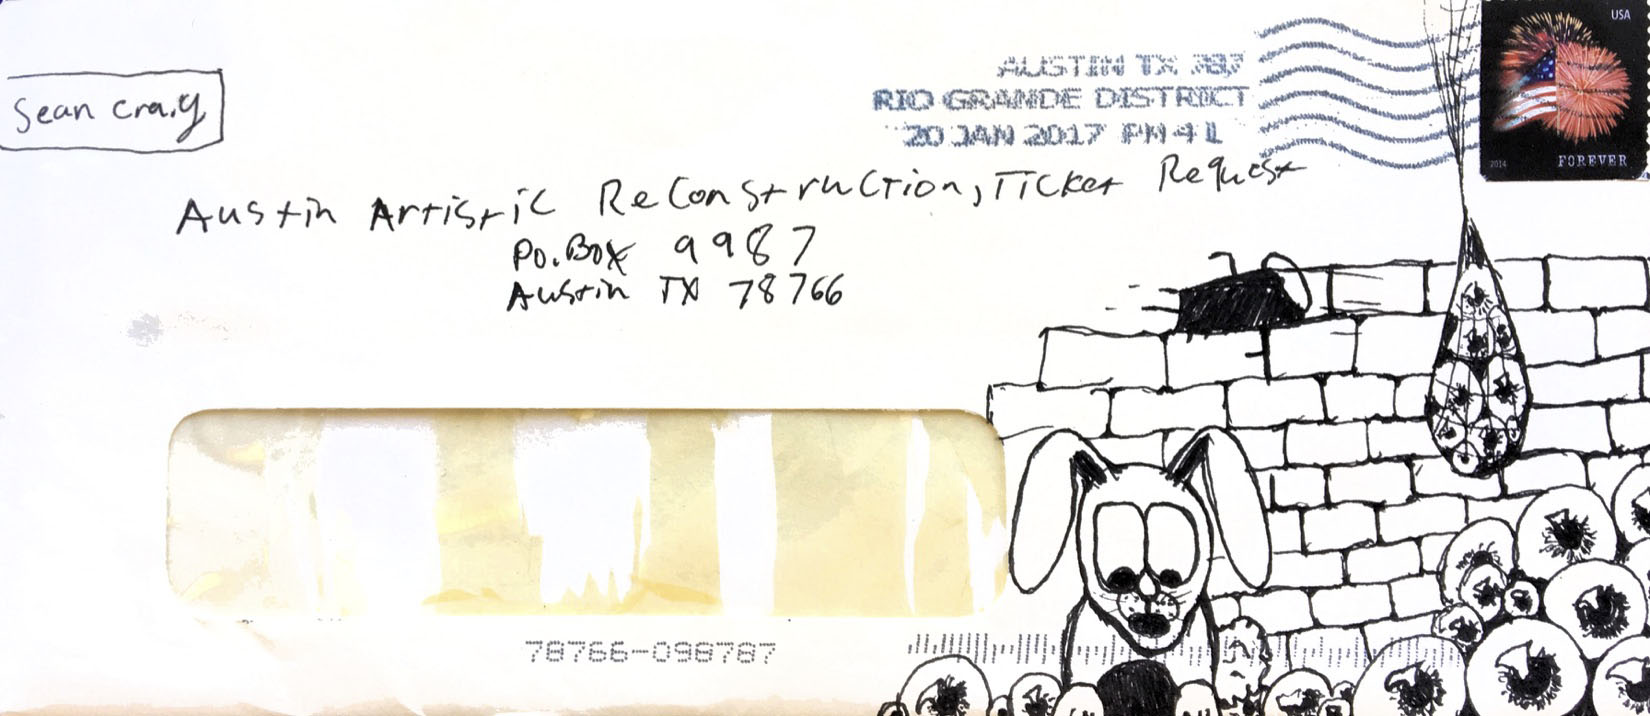 Sean Craig
AUSTIN TX 787
RIO GRANDE DISTRICT
20 JAN 2017 PM 4 L
USA
2014
FOREVER
Austin Artistic ReConstruction, Ticket Request
Po. Box 9987
Austin TX 78766
78766-098787